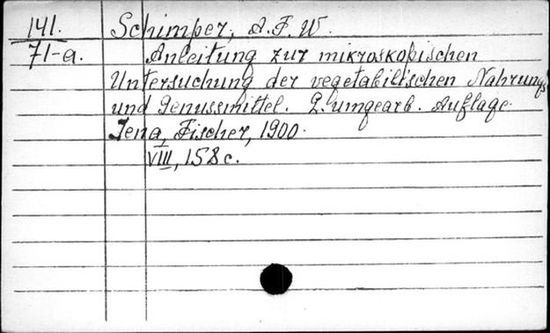 141. Schimper, A.F.W.
71-a. Anleitung zur mikroskopischen
Untersuchung der vegetabilischen Nahrungs
und Genussmittel. 2. umgearb. Auflage.
Jena, Fischer, 1900.
VIII, 158 c.